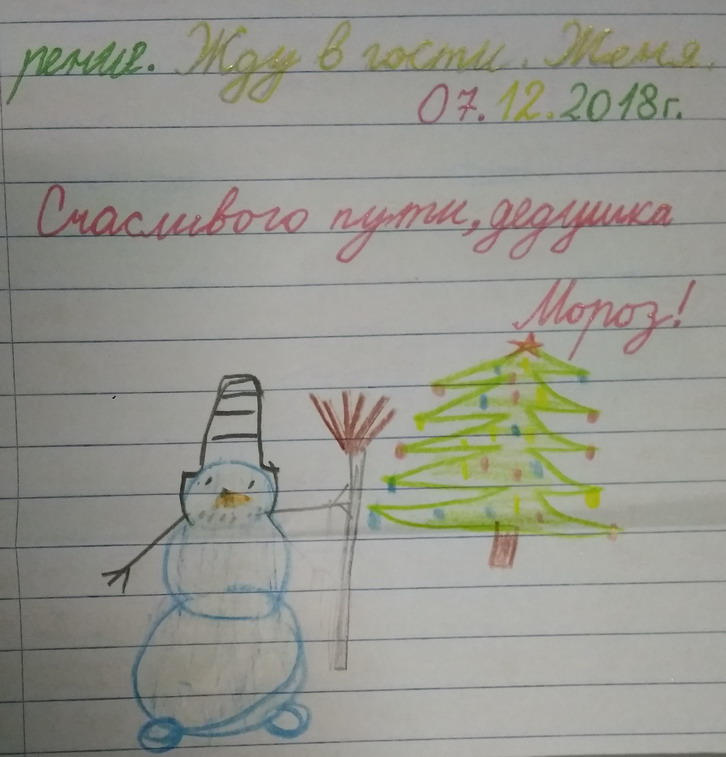 рение. Жду в гости. Женя.
07.12.2018г.
Счасливого пути, дедушка
Мороз!